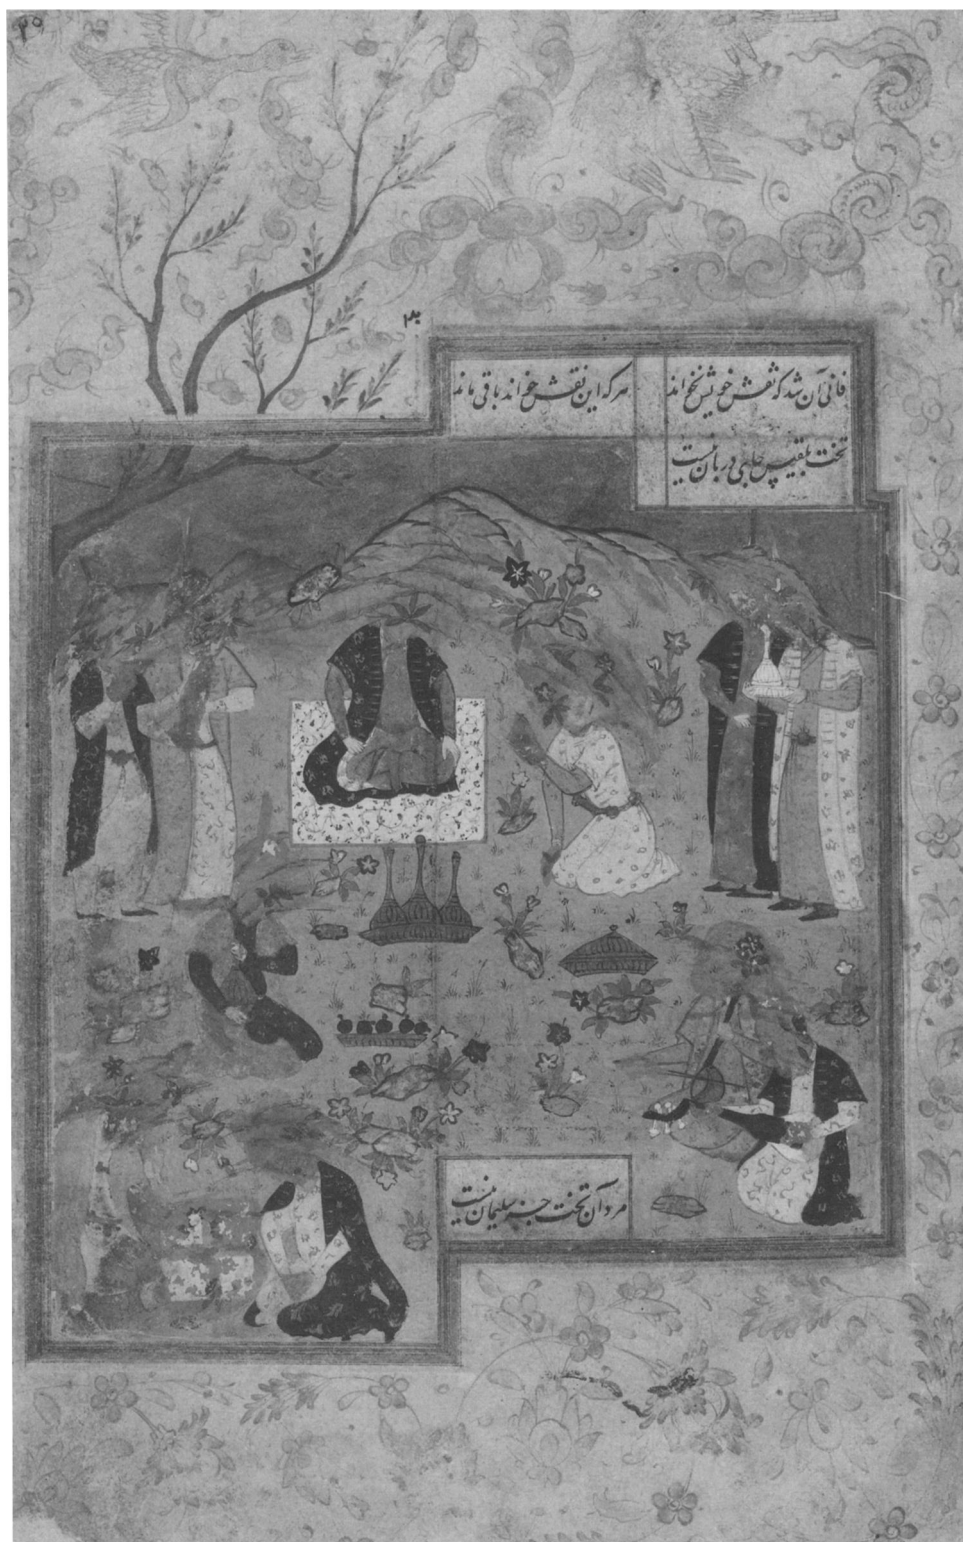 فانی آن شد که نقش خویش نخواند
هر که این نقش خواند باقی ماند
تخت بلقیس جای دربان نیست
مرد آن تخت جز سلیمان نیست